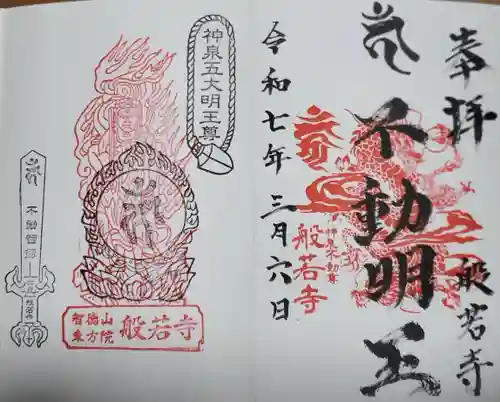 奉拝
般若寺
不動明王
般若寺
令和七年三月六日
神泉五大明王尊
不動智劔
智徳山
東方院
般若寺